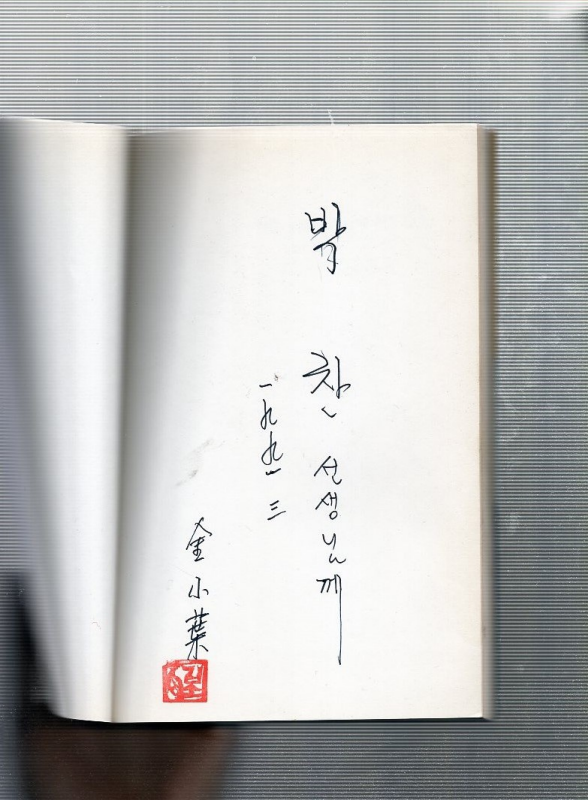 박 찬 선생님께
一九九一 三
金小葉